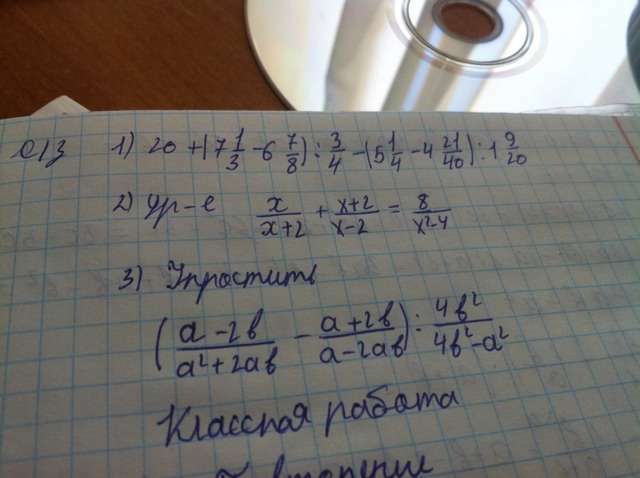 с/з 1) 20 + (7 1/3 - 6 7/8) : 3/4 - (5 1/4 - 4 21/40) : 1 9/20
2) Ур-е x/(x+2) + (x+2)/(x-2) = 8/(x²-4)
3) Упростить
((a-2b)/(a²+2ab) - (a+2b)/(a-2ab)) : 4b²/(4b²-a²)
Классная работа